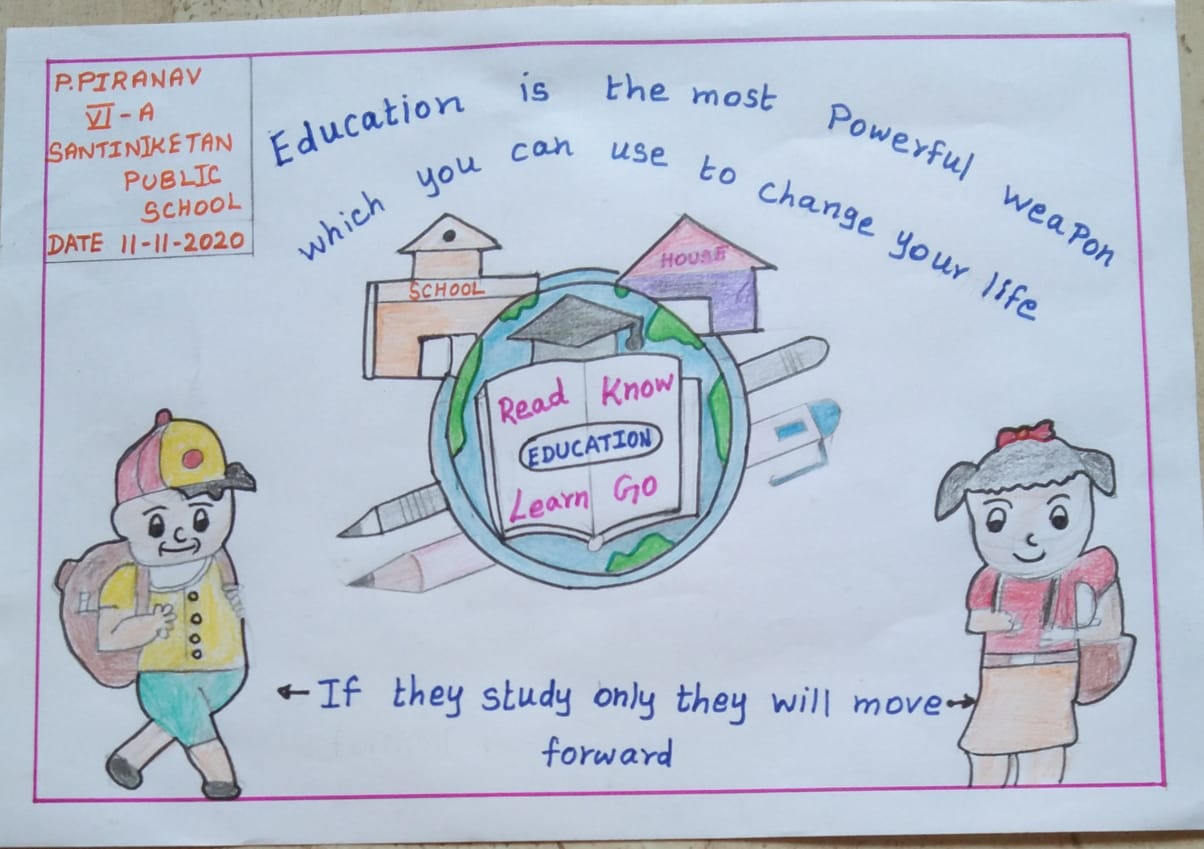 P.PIRANAV
VI-A
SANTINIKETAN
PUBLIC
SCHOOL
DATE 11-11-2020
Education is the most Powerful weapon
which you can use to change your life
SCHOOL
HOUSE
Read Know
EDUCATION
Learn Go
If they study only they will move
forward